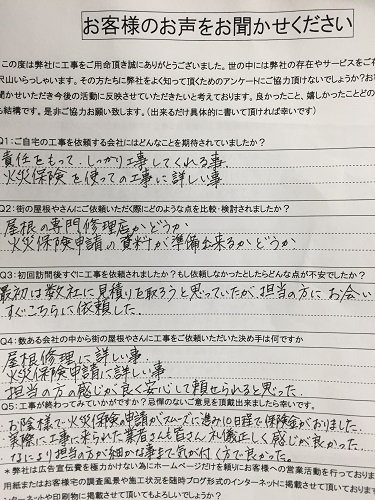 お客様のお声をお聞かせください
この度は弊社に工事をご用命頂き誠にありがとうございました。世の中には弊社の存在やサービスをご存
沢山いらっしゃいます。その方たちに弊社をよく知って頂くためのアンケートにご協力頂けないでしょうか?お
聞かせいただき今後の活動に反映させていただきたいと考えております。良かったこと、嬉しかったことどの
も結構です。是非ご協力お願い致します。(出来るだけ具体的に書いて頂ければ幸いです)
Q1:ご自宅の工事を依頼する会社にはどんなことを期待されていましたか?
責任をもって、しっかり工事してくれる事
火災保険を使っての工事に詳しい事
Q2:街の屋根やさんにご依頼いただく際にどのような点を比較・検討されましたか?
屋根の専門修理店かどうか
火災保険申請の資料が準備出来るかどうか
Q3:初回訪問後すぐに工事を依頼されましたか?もし依頼しなかったとしたらどんな点が不安でしたか?
最初は数社に見積りを取ろうと思っていたが、担当の方にお会い
すぐこちらに依頼した
Q4:数ある会社の中から街の屋根やさんに工事をご依頼いただいた決め手は何ですか
屋根修理に詳しい事。
火災保険申請に詳しい事。
担当の方の感じが良く安心して頼せられると思った。
Q5:工事が終わってみていかがですか?忌憚のないご意見を頂戴出来ましたら幸いです。
お陰様で火災保険の申請がスムーズに進み10日程で保険金がおりました。
実際に工事に来られた業者さんも皆さん礼義正しく感じが良かった。
なにより担当の方が細かな事まで気が付く方で良かった。
*弊社は広告宣伝費を極力かけない為にホームページだけを頼りにお客様への営業活動を行って
用紙またはお客様宅の調査風景や施工状況を随時ブログ形式のインターネットに掲載させて頂いております
ンターネットや印刷物に掲載させて頂いてもよろしいでしょうか?